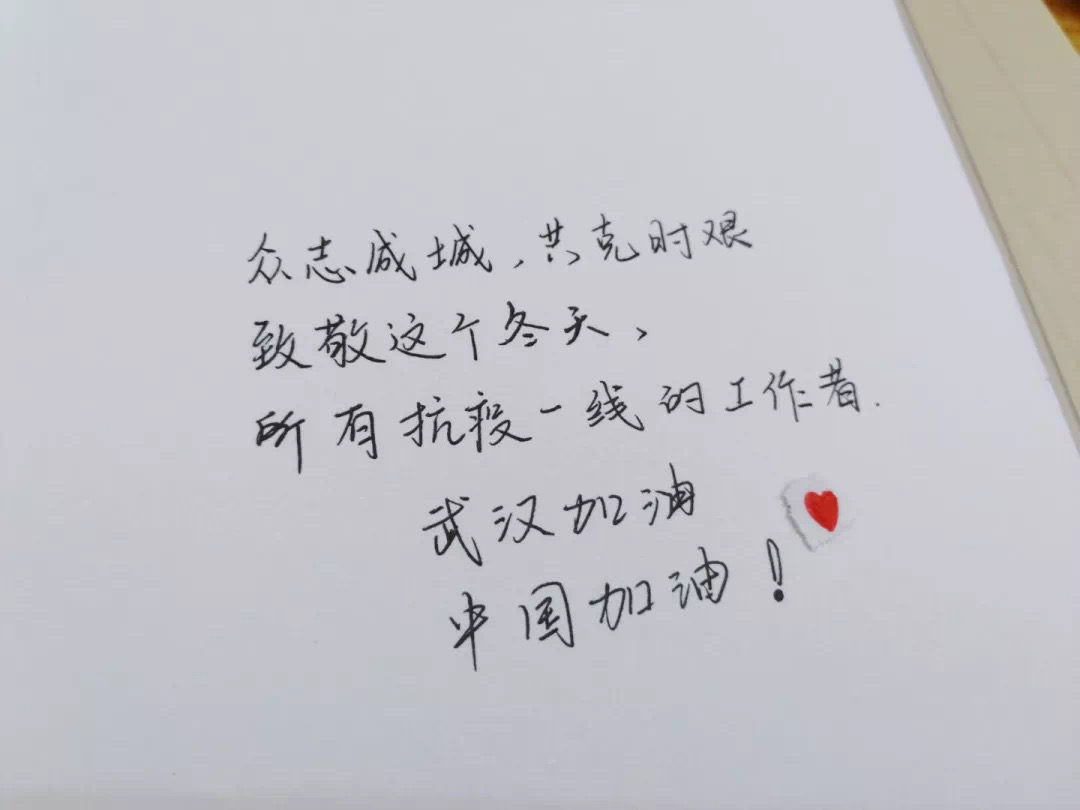 众志成城，共克时艰
致敬这个冬天，
所有抗疫一线的工作者.
武汉加油
中国加油！